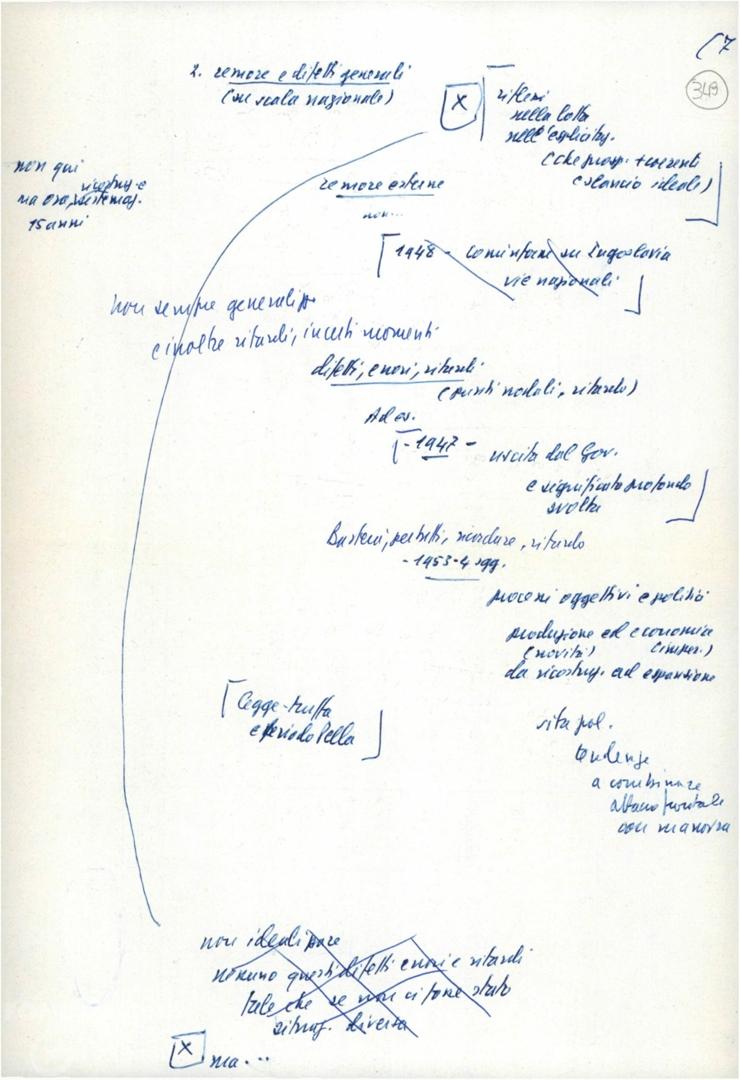 (7
349
2. remore e difetti generali
(su scala nazionale)
X
riflessi
nella lotta
nell'esplicitaz.
(che prosp. + coerenti
e slancio ideale)
non qui
ma ora, ricostruz. e
sistemaz.
15 anni
remore esterne
non...
1948 - Cominform su Iugoslavia
vie nazionali
non sempre generalizz.
e inoltre ritardi, in certi momenti
difetti, errori, ritardi
(punti nodali, ritardo)
Ad es.
- 1947 -
uscita dal Gov.
e significato profondo
svolta
ricordare, ritardo
- 1953-4 sgg.
processi oggettivi e politici
produzione ed economia
(novità) (imper.)
da ricostruz. ad espansione
legge-truffa
e periodo Pella
vita pol.
tendenze
a combinare
attacco frontale
con manovra
non idealizzare
nessuno questi difetti errori e ritardi
tale che se non ci fosse stato
situaz. diversa
X
ma...